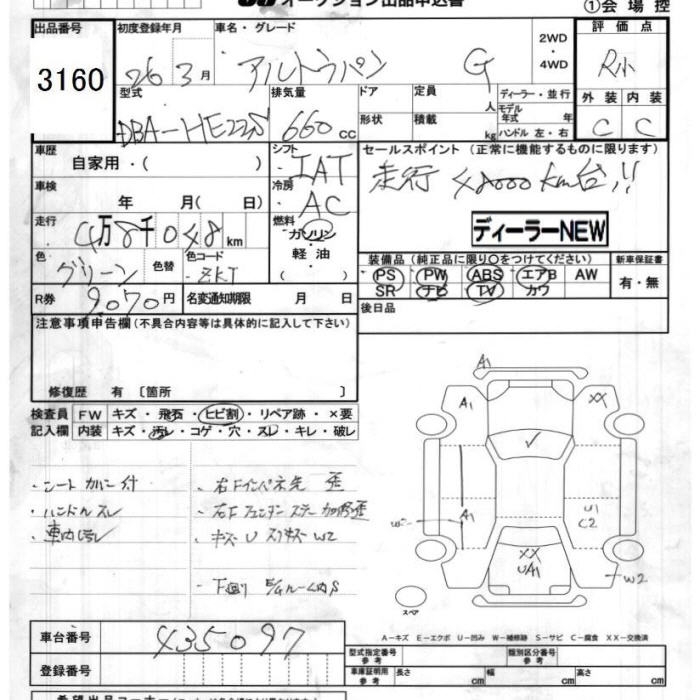 オークション出品申込書
①会場控
出品番号 初度登録年月 車名・グレード 2WD・4WD 評価点
3160 26 3月 アルトラパン G R小
型式 排気量 ドア 定員 人 ディーラー・並行
外装 内装
DBA-HE22S 660cc 形状 積載 kg モデル年式 年式 ハンドル左・右 C C
車歴 シフト セールスポイント (正常に機能するものに限ります)
自家用・( ) IAT 走行 48000km台!!
車検 年 月( 日) 冷房 AC
走行 4万8千048km 燃料 ガソリン・軽油・( ) ディーラーNEW
色 グリーン 色替 色コード ZKT 装備品 (純正品に限り〇をつけてください) 新車保証書
PS PW ABS エアB AW 有・無
SR ナビ TV カワ
R券 9070円 名変通知期限 月 日 後日品
注意事項申告欄 (不具合内容等は具体的に記入して下さい)
修復歴 有 〔箇所 〕
検査員記入欄 FW キズ・飛石・ヒビ割・リペア跡・×要
内装 キズ・汚レ・コゲ・穴・スレ・キレ・破レ
・シートカバー付 ・右Fインパネ先 歪
・ハンドルスレ ・右Fフェンダーステー
・車内汚レ ・キズ U スリキズ W2
・下廻り
A1
A1 XX
✓
A1 U1 C2
W
XX UA1
W2
スペア
A-キズ E-エクボ U-凹み W-補修跡 S-サビ C-腐食 XX-交換済
車台番号 435097
型式指定番号 参考 類別区分番号 参考
登録番号 車庫証明用 参考 長さ cm 幅 cm 高さ cm